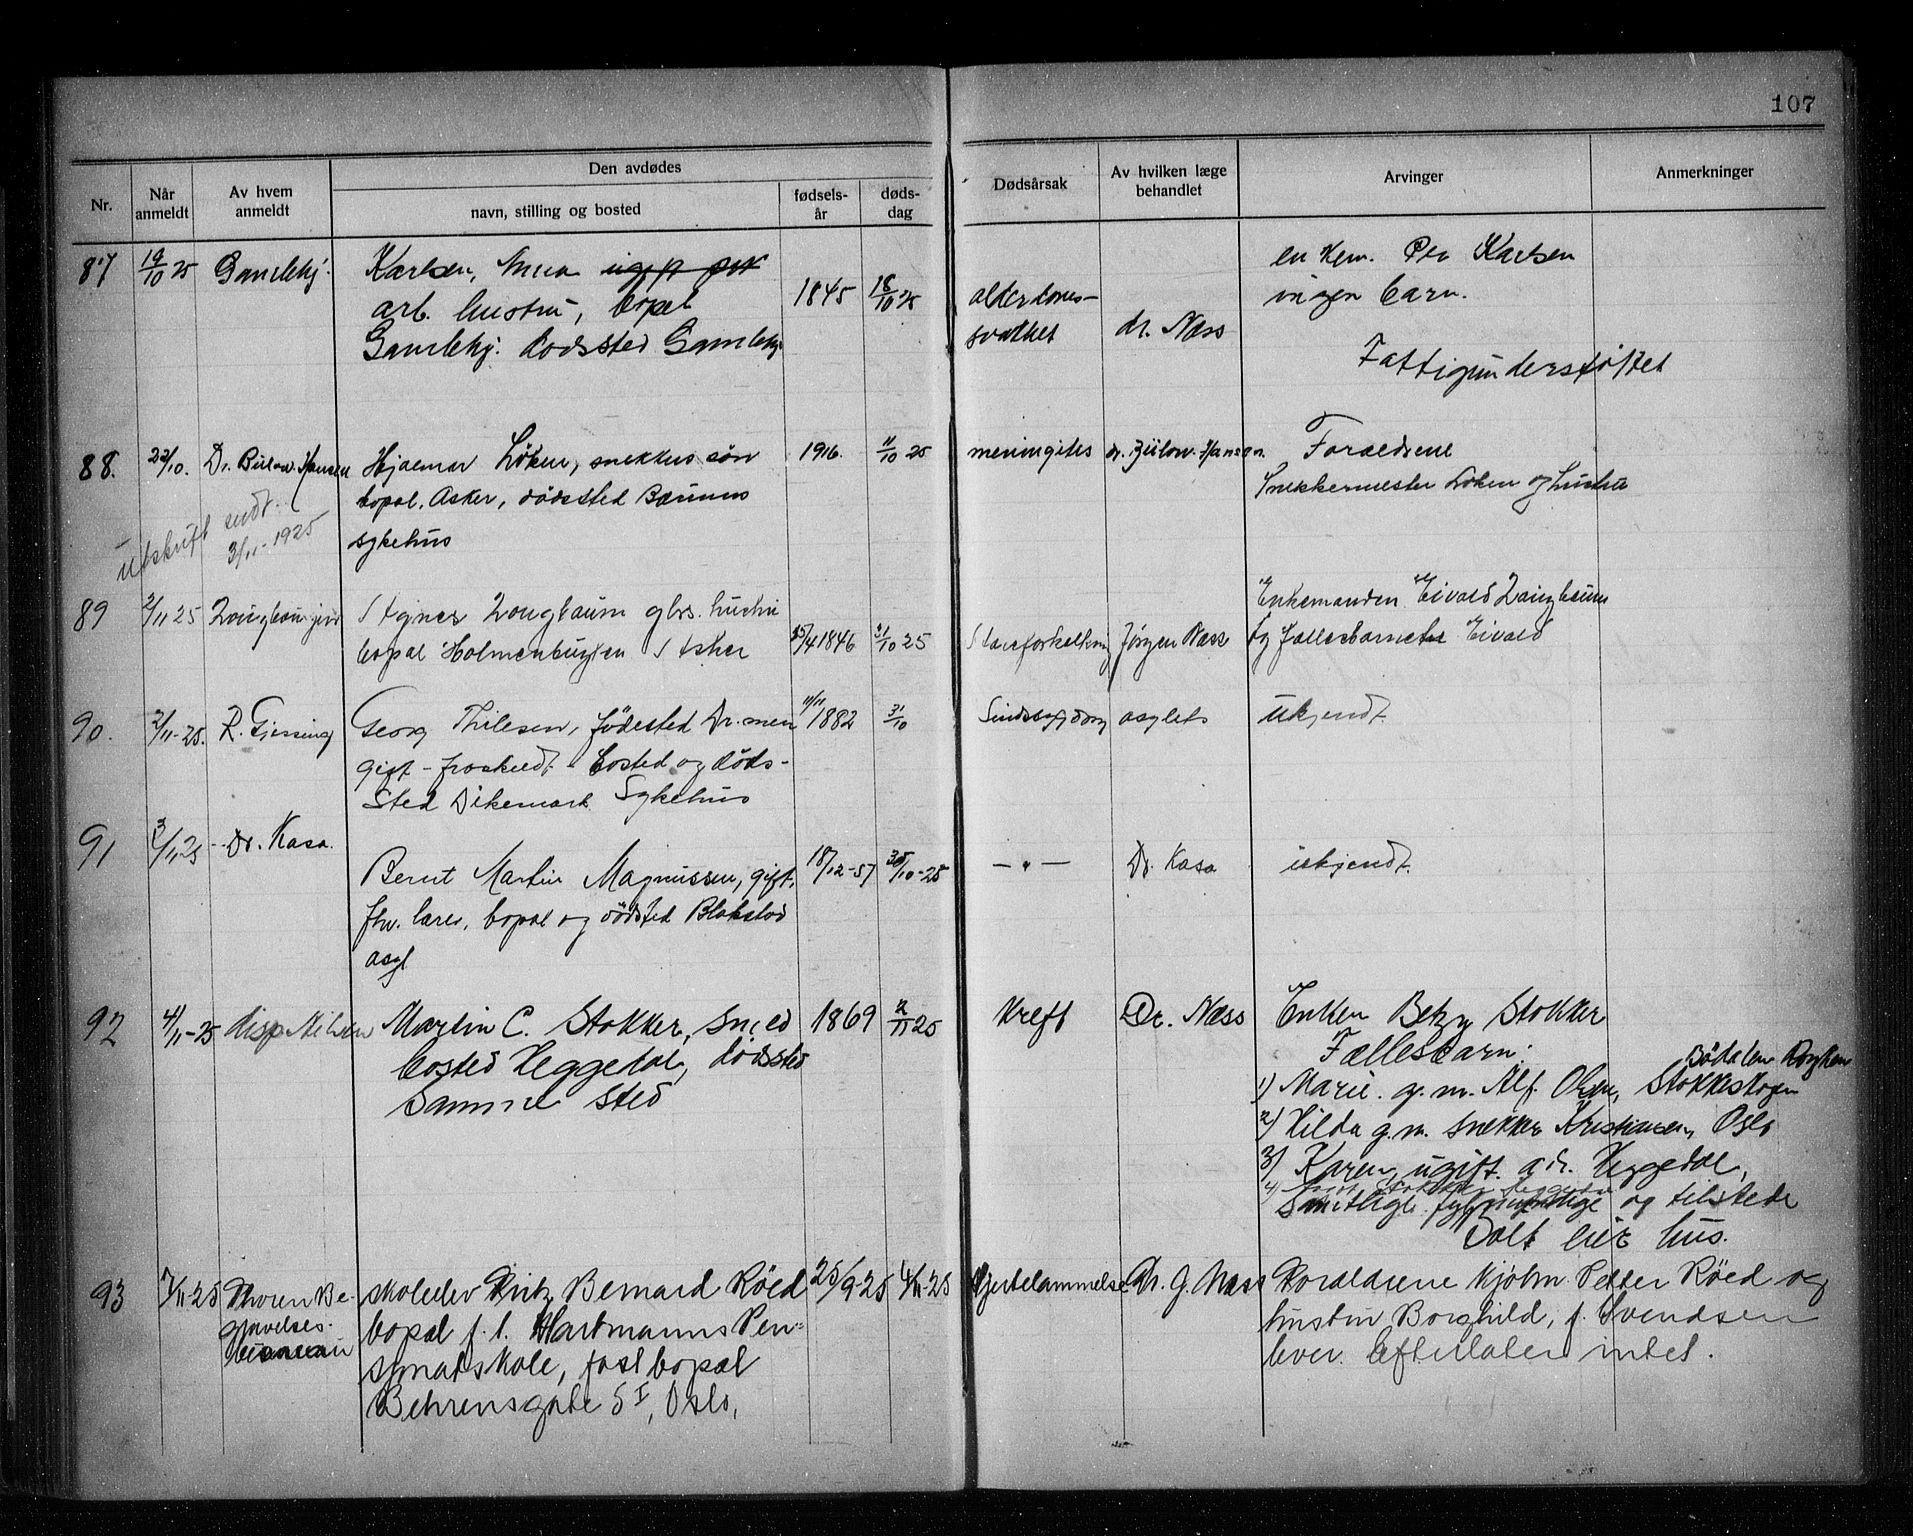 107
Den avdødes
Nr.
Når anmeldt
Av hvem anmeldt
navn, stilling og bosted
fødsels-år
døds-dag
Dødsårsak
Av hvilken læge behandlet
Arvinger
Anmerkninger
87 19/10 25 Gamlehj. Karlsen,
arb. hustru, bopæl
Gamlehj. dødssted Gamlehj.
1845 18/10 25
alderdoms-
svakhet
dr. Næss
enkem. Karlsen
ingen barn.
Fattigunderstøttet
88. 22/10. Dr. Bülow-Hansen
Hjalmar Løken, snekkers søn
bopæl. Asker, dødssted Bærums
sykehus
1916. 11/10 25
meningites dr. Bülow-Hansen.
Forældrene
Snekkermester Løken og hustru
Utskrift sendt.
3/11-1925
89 2/11 25
Agnes Langbaum gbrs. hustru
bopæl Holmenbugten Asker
25/4 1846 31/10 25
Aareforkalkning Jørgen Næss
Enkemanden Eivald Langbaum
og fællesbarnet Eivald
90. 2/11-25. R. Gjessing
Georg Thilesen, fødested Dr.men
gift - fraskildt - bosted og døds-
sted Dikemark Sykehus
11/11 1882 31/10
Sindssygdom asylets ukjendt
91 3/11 25 - Dr. Kasa.
Bernt Martin Magnussen, gift,
fhv. lærer, bopæl og dødsted Blakstad
asyl
18/12-57 30/10-25
— " — Dr. Kasa ukjendt.
92 4/11-25 disp Nilsen
Martin C. Stokker, smed
bosted Heggedal, dødssted
samme sted
1869 2/11 25
Kreft Dr. Næss
Enken Betzy Stokker
Fællesbarn:
Bødalen Røyken
1) Marie. g. m. Alf. Olsen, Stokkeskogen
2) Hilda g. m. snekker Kristiansen, Oslo
3) Karen, ugift. adr. Heggedal,
4) Stokker Heggedal
Samtlige fuldmyndige og tilstede
Solt eiet hus.
93 7/11-25 Thoren Be-
gravelses-
bureau
skoleelev Fritz Bernard Røed
bopæl f. t. Hartmanns Pen-
sjonatskole, fast bopæl
Behrensgate 5 I, Oslo,
25/9-25 4/11-25
Hjertelammelse Dr. J. Næss
Forældrene Kjøbm. Petter Røed og
hustru Borghild, f. Svendsen
lever. Efterlater intet.